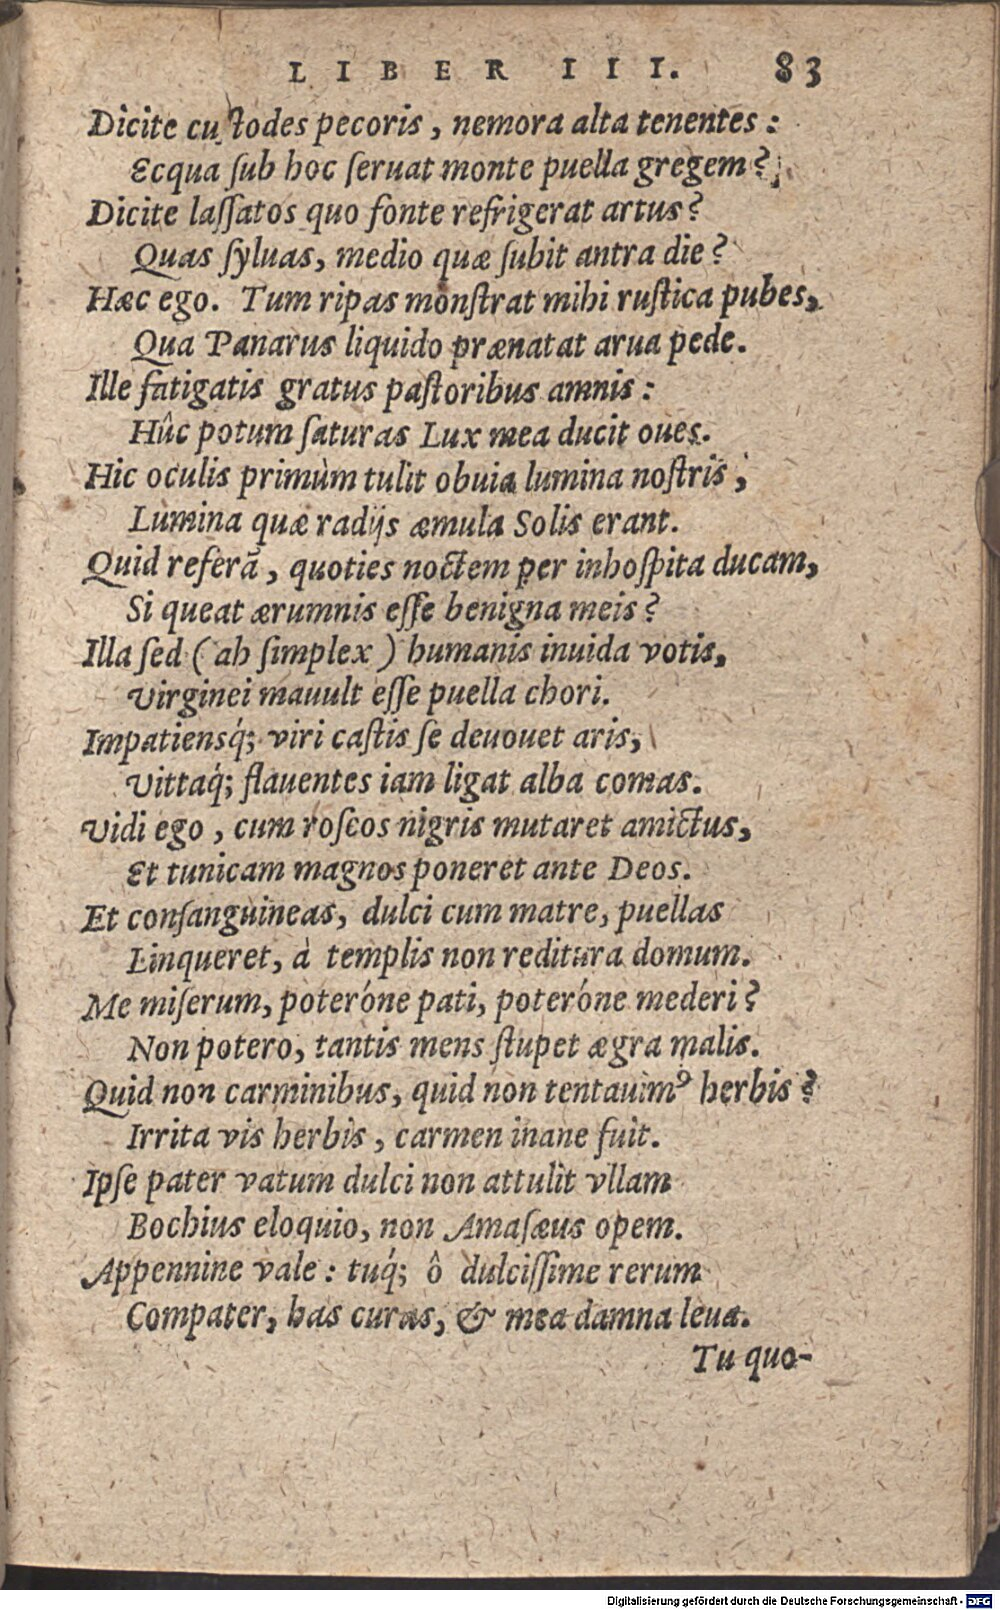 LIBER III. 83
Dicite cuſtodes pecoris, nemora alta tenentes:
Ecqua ſub hoc ſeruat monte puella gregem?
Dicite laſſatos quo fonte refrigerat artus?
Quas ſyluas, medio quæ ſubit antra die?
Hæc ego. Tum ripas monſtrat mihi ruſtica pubes,
Qua Panarus liquido prænatat arua pede.
Ille fatigatis gratus paſtoribus amnis:
Hûc potum ſaturas Lux mea ducit oues.
Hic oculis primùm tulit obuia lumina noſtris,
Lumina quæ radijs æmula Solis erant.
Quid referã, quoties noctem per inhoſpita ducam,
Si queat ærumnis eſſe benigna meis?
Illa ſed (ah ſimplex) humanis inuida votis,
Virginei mauult eſſe puella chori.
Impatiensq́; viri caſtis ſe deuouet aris,
Vittaq́; flauentes iam ligat alba comas.
Vidi ego, cum roſeos nigris mutaret amictus,
Et tunicam magnos poneret ante Deos.
Et conſanguineas, dulci cum matre, puellas
Linqueret, à templis non reditura domum.
Me miſerum, poteróne pati, poteróne mederi?
Non potero, tantis mens ſtupet ægra malis.
Quid non carminibus, quid non tentauimꝰ herbis?
Irrita vis herbis, carmen inane fuit.
Ipſe pater vatum dulci non attulit vllam
Bochius eloquio, non Amaſæus opem.
Appennine vale: tuq́; ô dulciſſime rerum
Compater, has curas, & mea damna leua.
Tu quo-
Digitalisierung gefördert durch die Deutsche Forschungsgemeinschaft - DFG